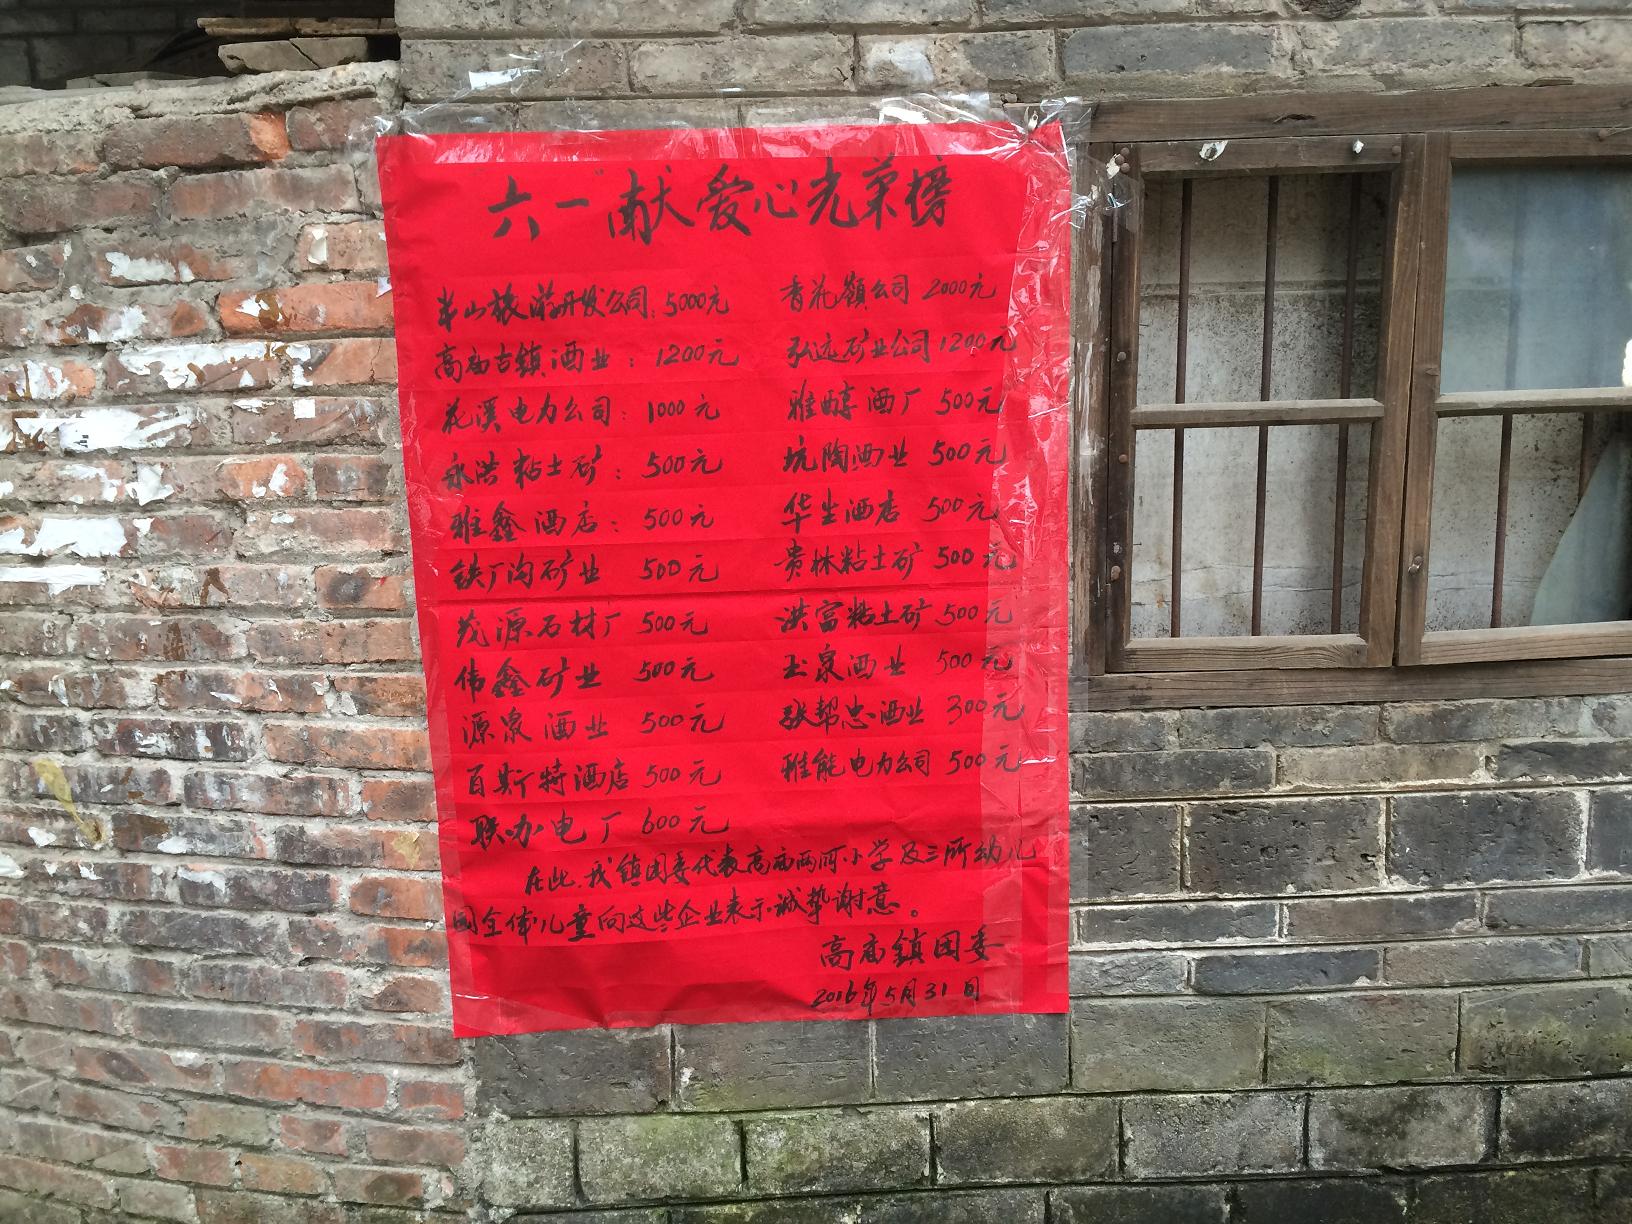 "六一"献爱心光荣榜
半山旅游开发公司:5000元 香花嶺公司 2000元
高庙古镇酒业：1200元 弘远矿业公司1200元
花溪电力公司：1000元 雅醇酒厂 500元
永洪粘土矿：500元 坑陶酒业 500元
雅鑫酒店：500元 华生酒店 500元
铁厂沟矿业 500元 贵林粘土矿 500元
茂源石材厂 500元 洪富粘土矿 500元
伟鑫矿业 500元 玉泉酒业 500元
源泉酒业 500元 张帮忠酒业 300元
百斯特酒店 500元 雅能电力公司 500元
联办电厂 600元
在此,我镇团委代表高庙两河小学及三所幼儿
园全体儿童向这些企业表示诚挚谢意。
高庙镇团委
2016年5月31日